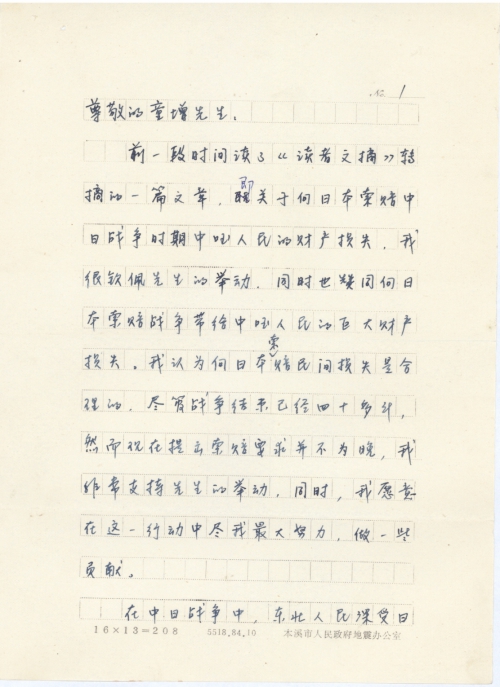 No. 1
尊敬的童增先生。
前一段时间读了《读者文摘》转
摘的一篇文章，即关于向日本索赔中
日战争时期中国人民的财产损失，我
很钦佩先生的举动，同时也赞同向日
本索赔战争带给中国人民的巨大财产
损失。我认为向日本索赔民间损失是合
理的，尽管战争结束已经四十多年，
然而现在提出索赔要求并不为晚，我
非常支持先生的举动，同时，我愿意
在这一行动中尽我最大努力，做一些
贡献。
在中日战争中，东北人民深受日
16×13=208 5518.84.10 本溪市人民政府地震办公室